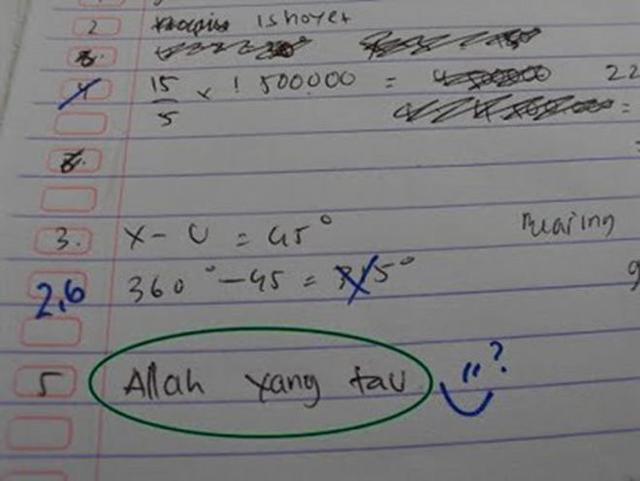 2 isohyet
15/5 x 1 500000 = 22
3. X - U = 45° Bearing
2,6 360° - 45 = 5° 9
5 Allah yang tau "?